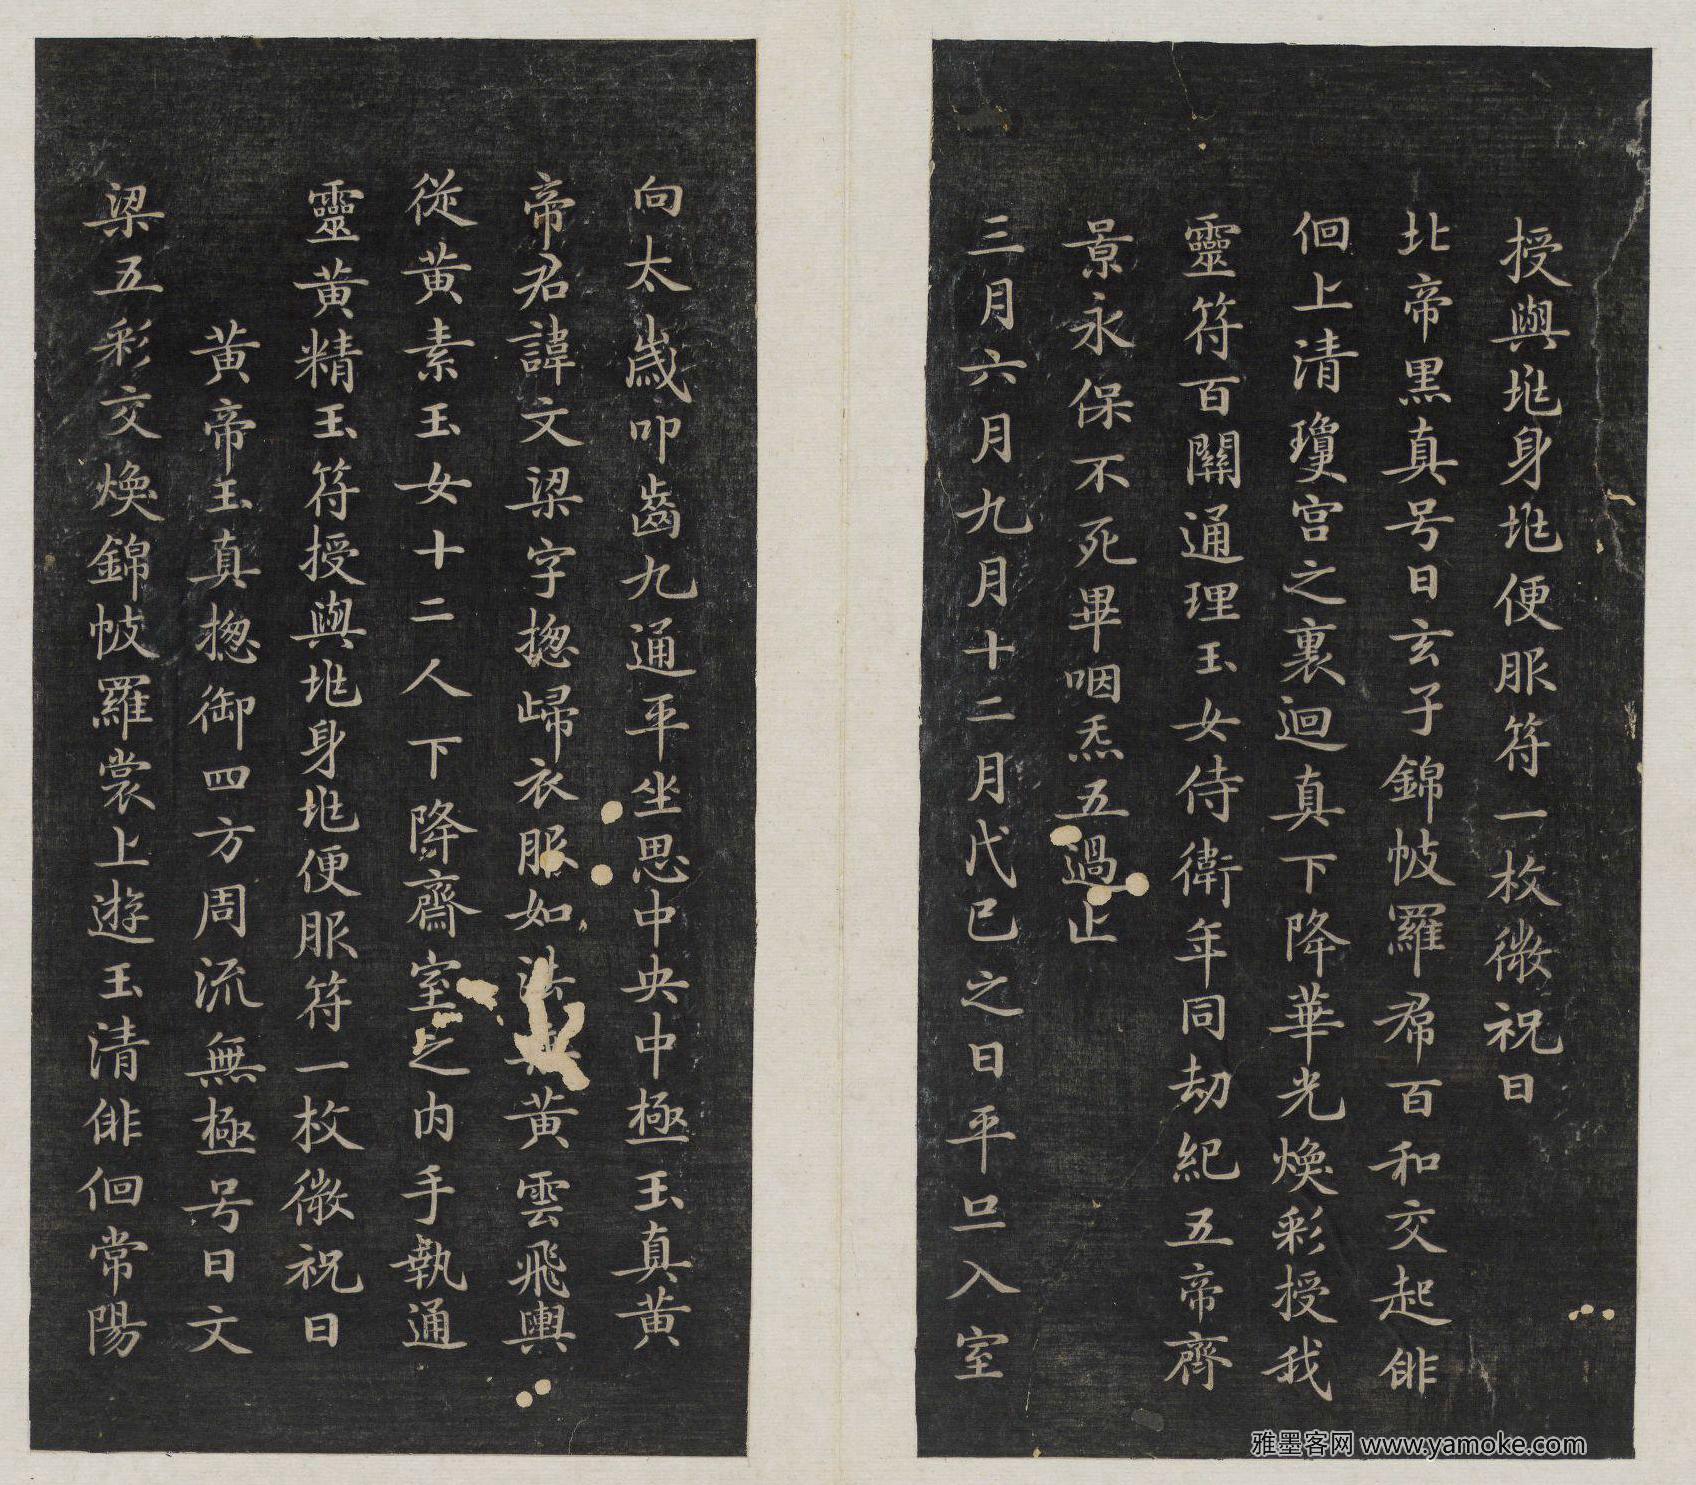 授與𡉏身𡉏便服符一枚微祝曰
北帝黑真号曰玄子錦帔羅帬百和交起俳
佪上清瓊宫之裏迴真下降華光煥彩授我
靈符百關通理玉女侍衛年同劫紀五帝齊
景永保不死畢咽炁五過止
三月六月九月十二月戊巳之日平旦入室
向太歲叩齒九通平坐思中央中極玉真黃
帝君諱文梁字揔歸衣服如法乘黃雲飛輿
從黃素玉女十二人下降齋室之内手執通
靈黃精玉符授與𡉏身𡉏便服符一枚微祝曰
黃帝玉真揔御四方周流無極号曰文
梁五彩交煥錦帔羅裳上遊玉清俳佪常陽
雅墨客网 www.yamoke.com